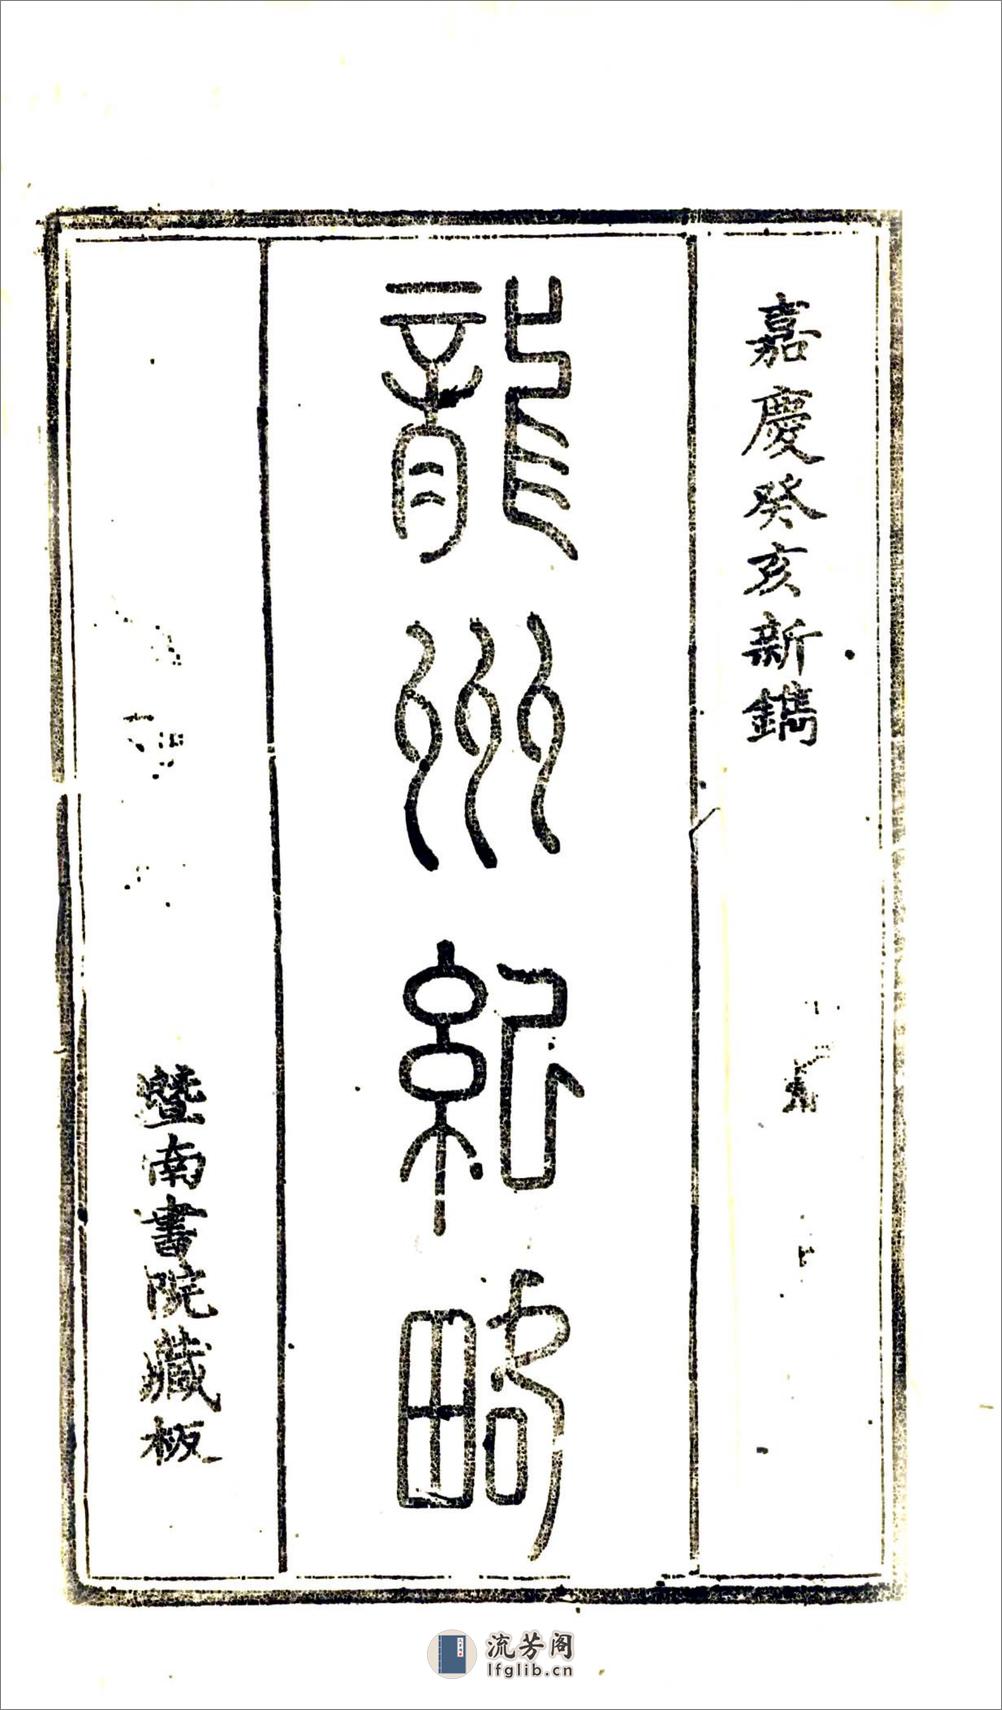 嘉慶癸亥新鐫
龍州紀略
暨南書院藏板
流芳阁
lfglib.cn